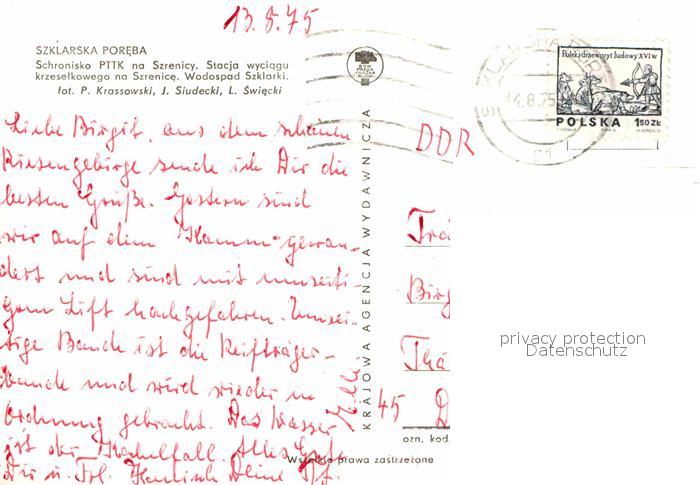 13.8.75
SZKLARSKA PORĘBA
Schronisko PTTK na Szrenicy. Stacja wyciągu
krzesełkowego na Szrenicę. Wodospad Szklarki.
fot. P. Krassowski, J. Siudecki, L. Święcki
Liebe Birgit, aus dem schönen
Riesengebirge sende ich Dir die
besten Grüße. Gestern sind
wir auf dem "Kamm" gewan-
dert und sind mit
Lift hochgefahren.
Baude ist die Reifträger-
baude und wird wieder in
Ordnung gebracht. Das Wasser
ist der Kochelfall. Alles Gute
Dir u. Frl. Deine
KRAJOWA AGENCJA WYDAWNICZA
Polski drzeworyt ludowy XVI w
POLSKA 1,50 ZŁ
14.8.75
DDR
Frä
Birg
Thä
45 D
ozn. kod.
Wszelkie prawa zastrzeżone
privacy protection
Datenschutz